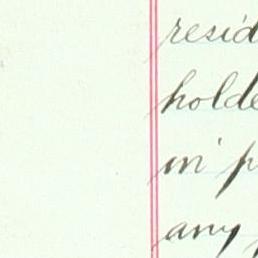 resid
holde
in p
any